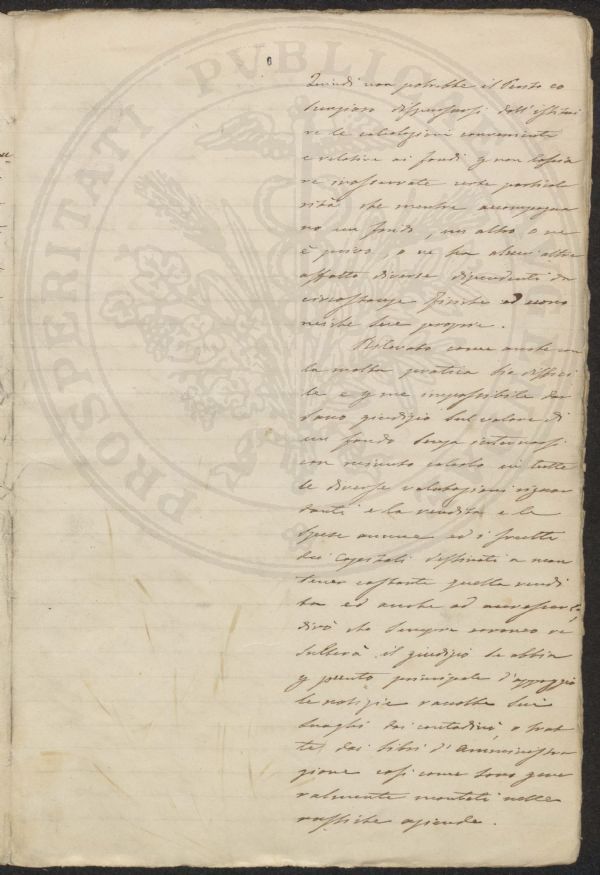 PROSPERITATI PVBLICAE
Quindi non potrebbe il Perito co
scenzioso dispensarsi dall'istitui
re le valutazioni convenienti
e relative ai fondi e non lascia
re inosservate certe particola
rità che mentre accompagna
no un fondo, un altro o ne
è privo, o ne ha alcun'altre
affatto diverse dipendenti da
circostanze fisiche od econo
miche sue proprie.
Rilevato come anche con
la molta pratica sia diffici
le e impossibile dar
sano giudizio sul valore di
un fondo senza internarsi
con minuto calcolo in tutte
le diverse valutazioni riguar
danti e la rendita e le
spese annue ed i frutti
dei Capitali destinati a man
tener costante quella rendi
ta ed anche ad accrescerla,
dirò che sempre erroneo ri
sulterà il giudizio se abbia
per punto principale d'appoggio
le notizie raccolte sui
luoghi dai contadini o trat
te dai libri d'Amministra
zione così come sono gene
ralmente montati nelle
rustiche aziende.